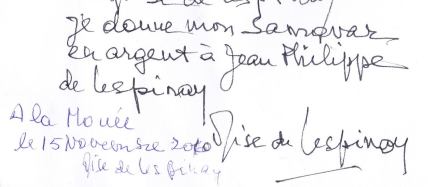 je donne mon Samovar
en argent à Jean Philippe
de Lespinay
A la Mouée
le 15 Novembre 2010
Lise de Lespinay
Lise de Lespinay